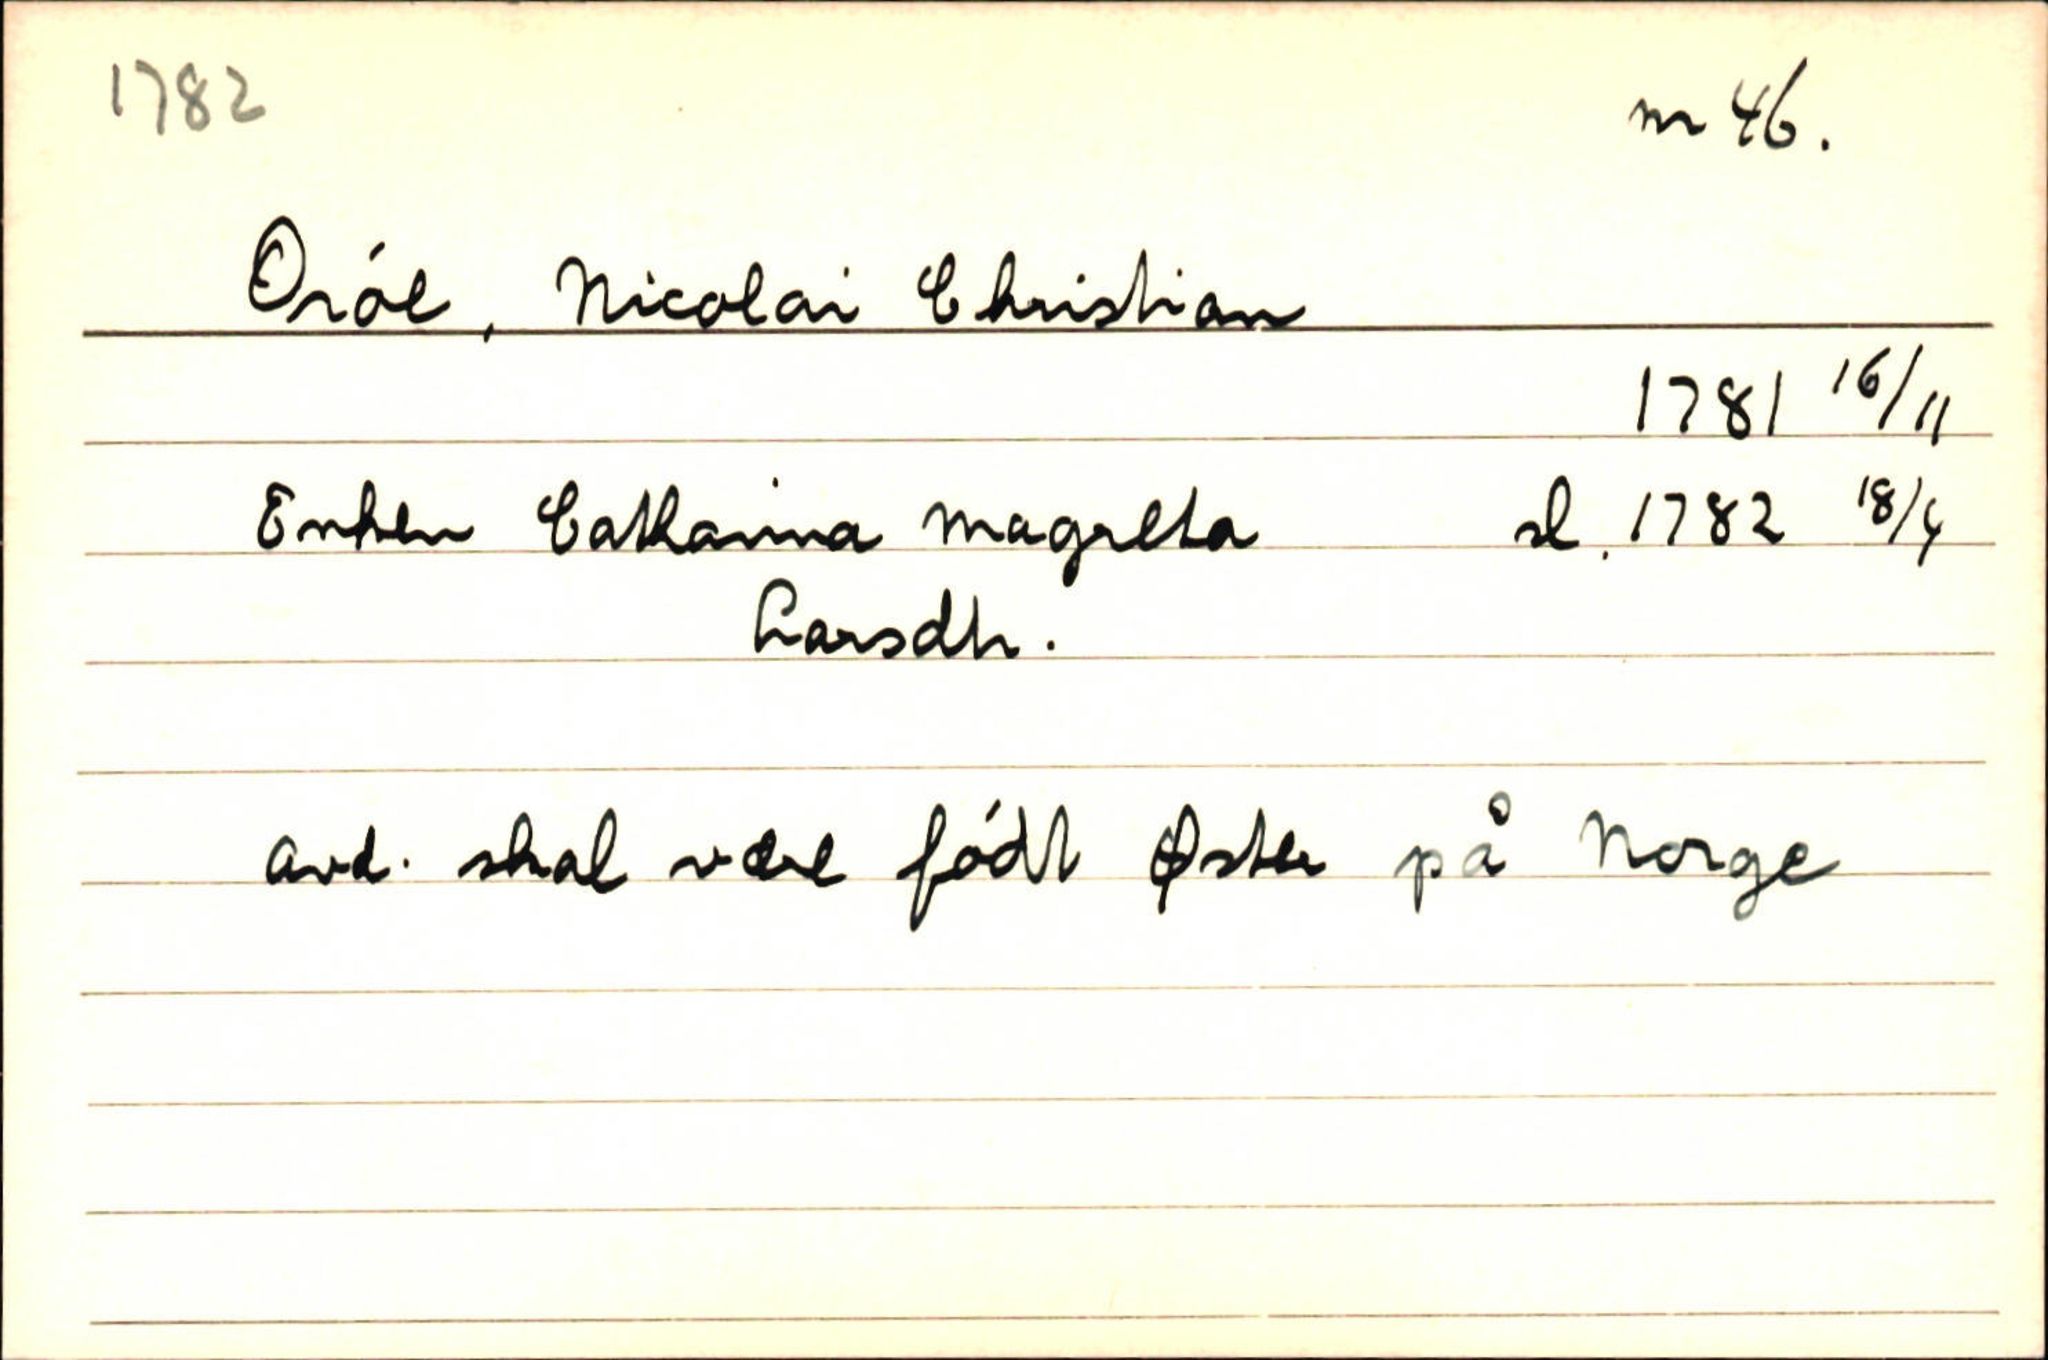 1782 nr 46.
Oróe, Nicolai Christian
1781 16/11
Enken Catharina Magreta sl. 1782 18/4
Larsdtr.
avd. skal være fódt Øster på Norge